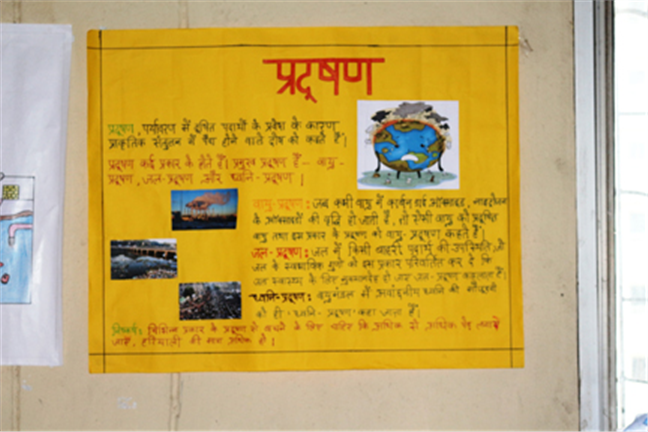 प्रदूषण
प्रदूषण, पर्यावरण में दूषित पदार्थों के प्रवेश के कारण
प्राकृतिक संतुलन में पैदा होने वाले दोष को कहते हैं।
प्रदूषण कई प्रकार के होते हैं। प्रमुख प्रदूषण हैं - वायु -
प्रदूषण, जल-प्रदूषण और ध्वनि-प्रदूषण।
वायु-प्रदूषण: जब कभी वायु में कार्बन डाई ऑक्साइड, नाइट्रोजन
के ऑक्साइडों की वृद्धि हो जाती है, तो ऐसी वायु को प्रदूषित
वायु तथा इस प्रकार के प्रदूषण को वायु-प्रदूषण कहते हैं।
जल-प्रदूषण: जल में किसी बाहरी पदार्थ की उपस्थिति, जो
जल के स्वभाविक गुणों को इस प्रकार परिवर्तित कर दे कि
जल स्वास्थ्य के लिए नुकसानदेह हो जाए जल-प्रदूषण कहलाता है।
ध्वनि-प्रदूषण: वायुमंडल में अवांछनीय ध्वनि की मौजूदगी
को ही 'ध्वनि-प्रदूषण' कहा जाता है।
निष्कर्ष: विभिन्न प्रकार के प्रदूषण से बचने के लिए चाहिए कि अधिक से अधिक पेड़ लगाये
जाये, हरियाली की मात्रा अधिक हो।